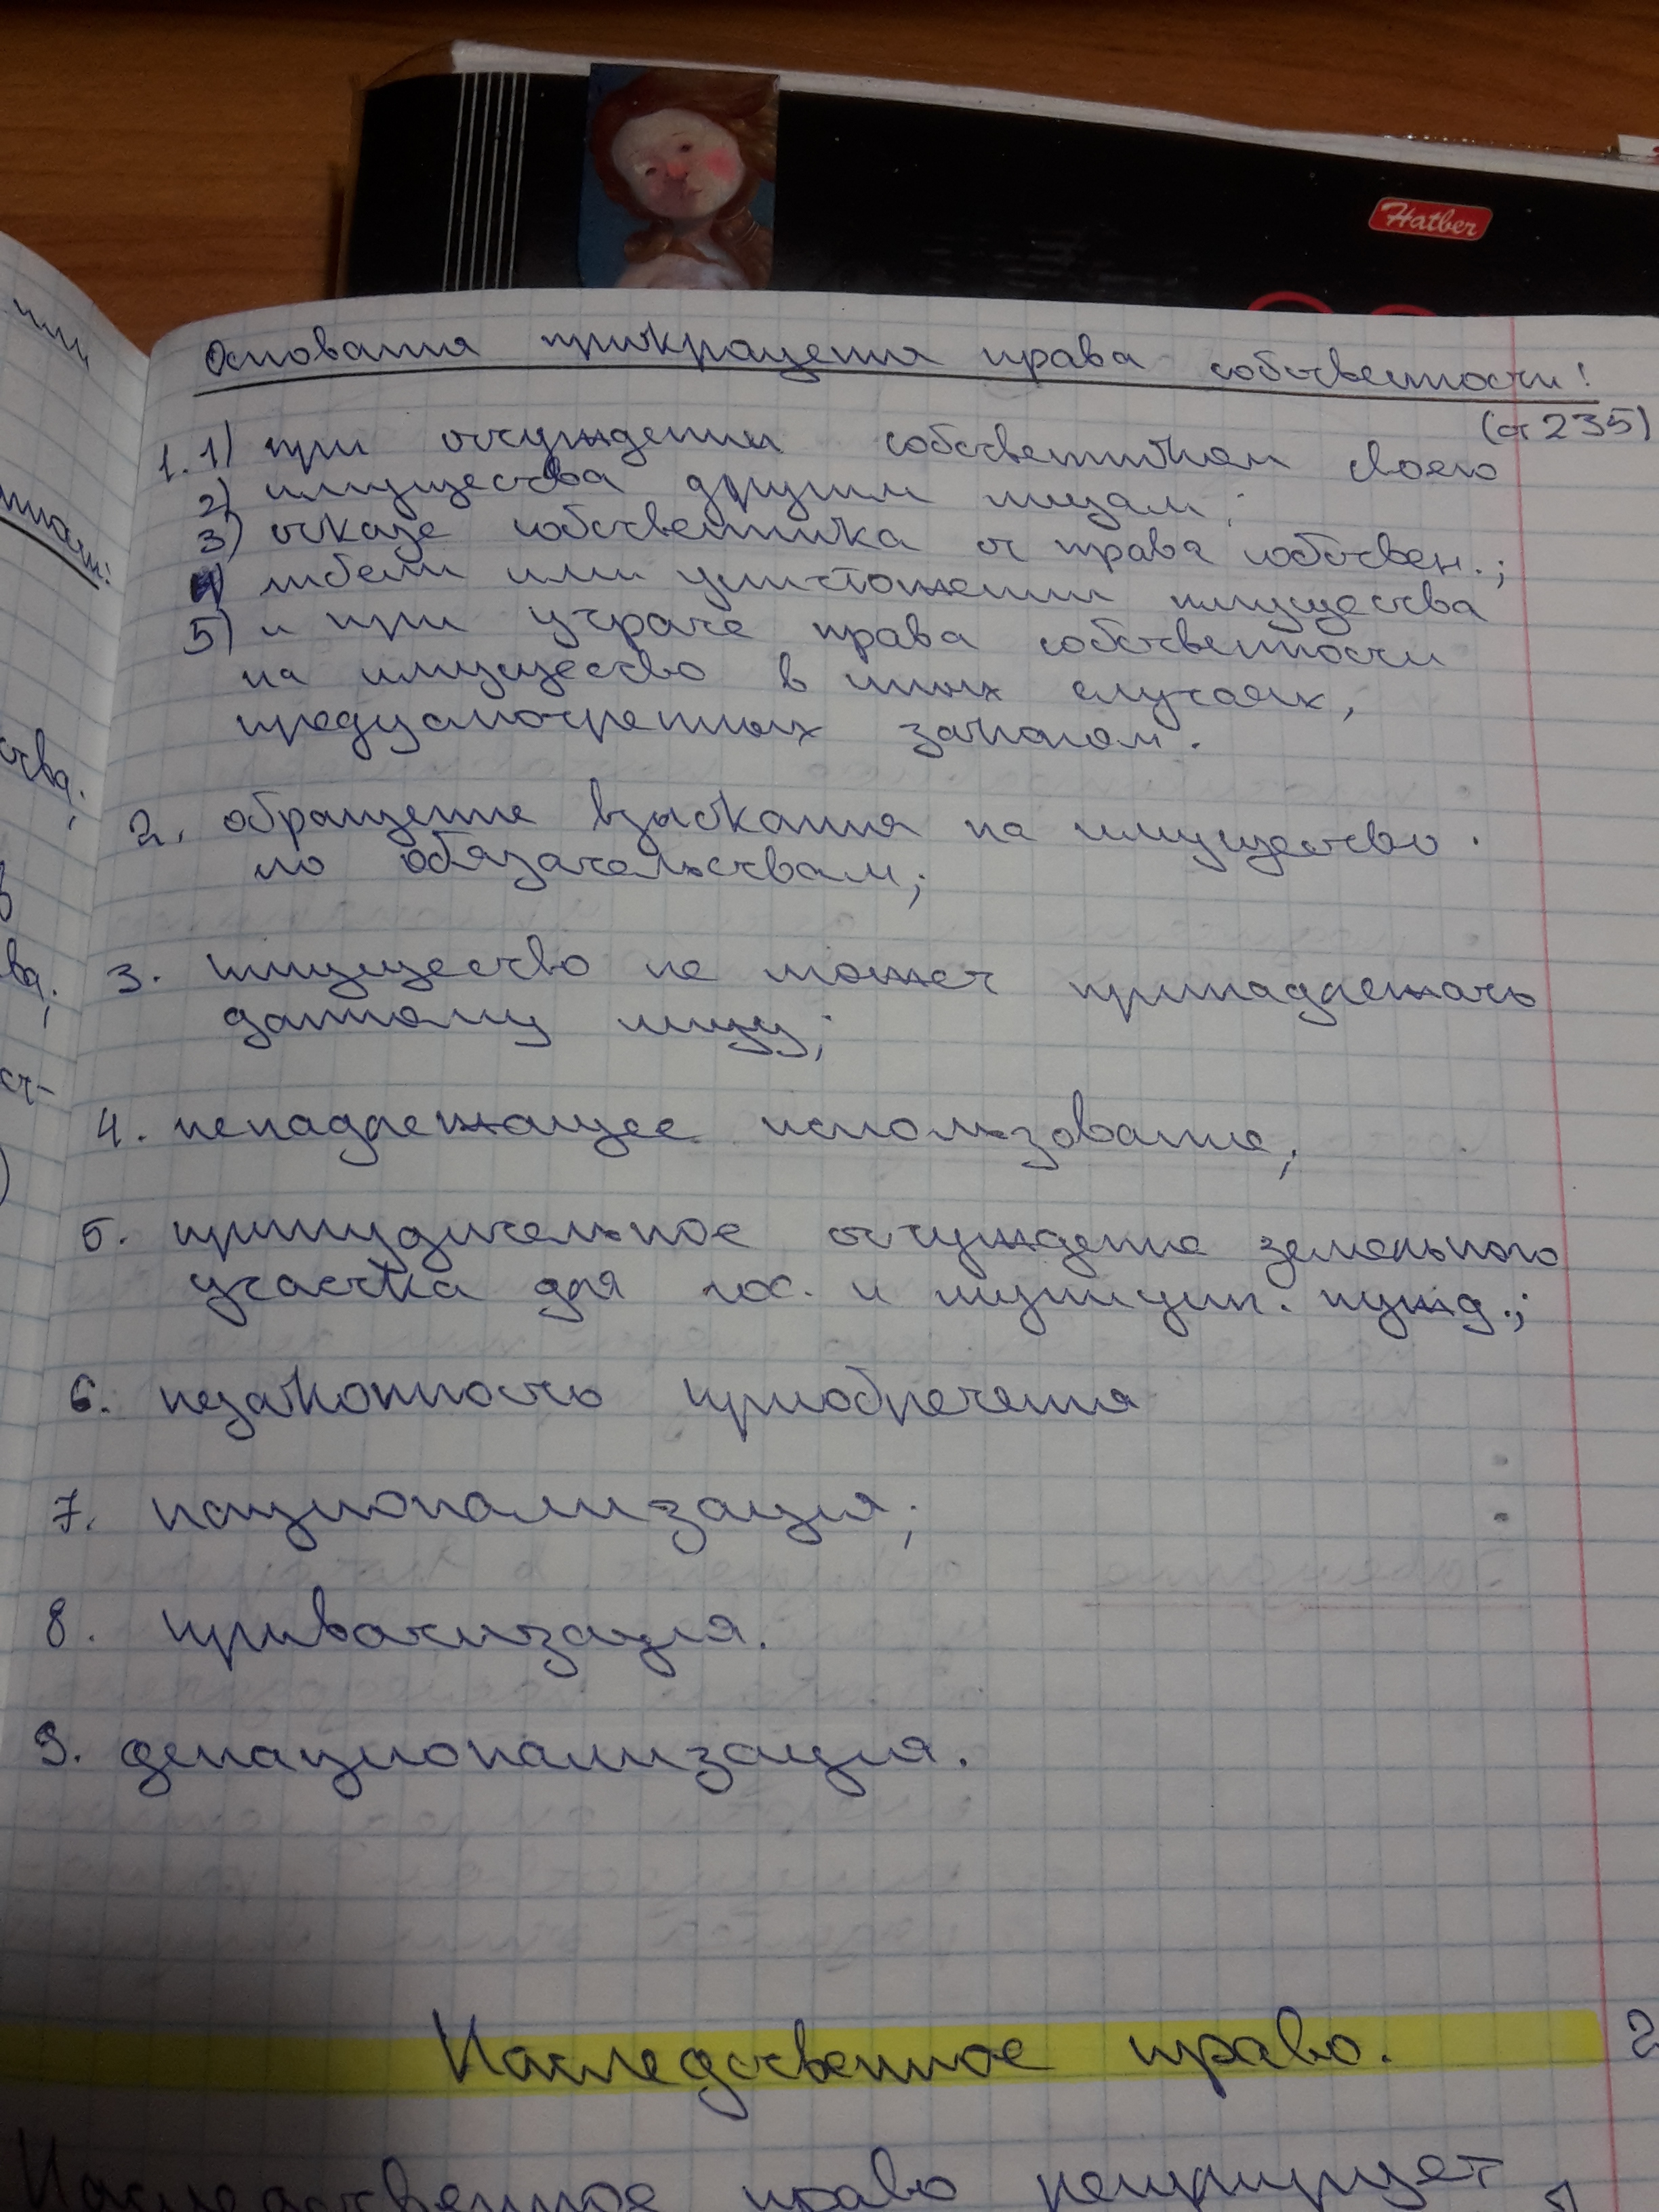 Hatber
Основания прикращения права собственности!
(ст 235)
1. 1) при отчуждении собственником своего
2) имущества другим лицам;
3) отказе собственника от права собствен.;
4) гибели или уничтожении имущества
5) и при утрате права собственности
на имущество в иных случаях,
предусмотренных законом.
2. обращение взыскания на имущество
по обязательствам;
3. имущество не может принадлежать
данному лицу;
4. ненадлежащее использование;
5. принудительное отчуждение земельного
участка для гос. и муницип. нужд.;
6. незаконность приобретения
7. национализация;
8. приватизация.
9. денационализация.
Наследственное право.
2
Наследственное право